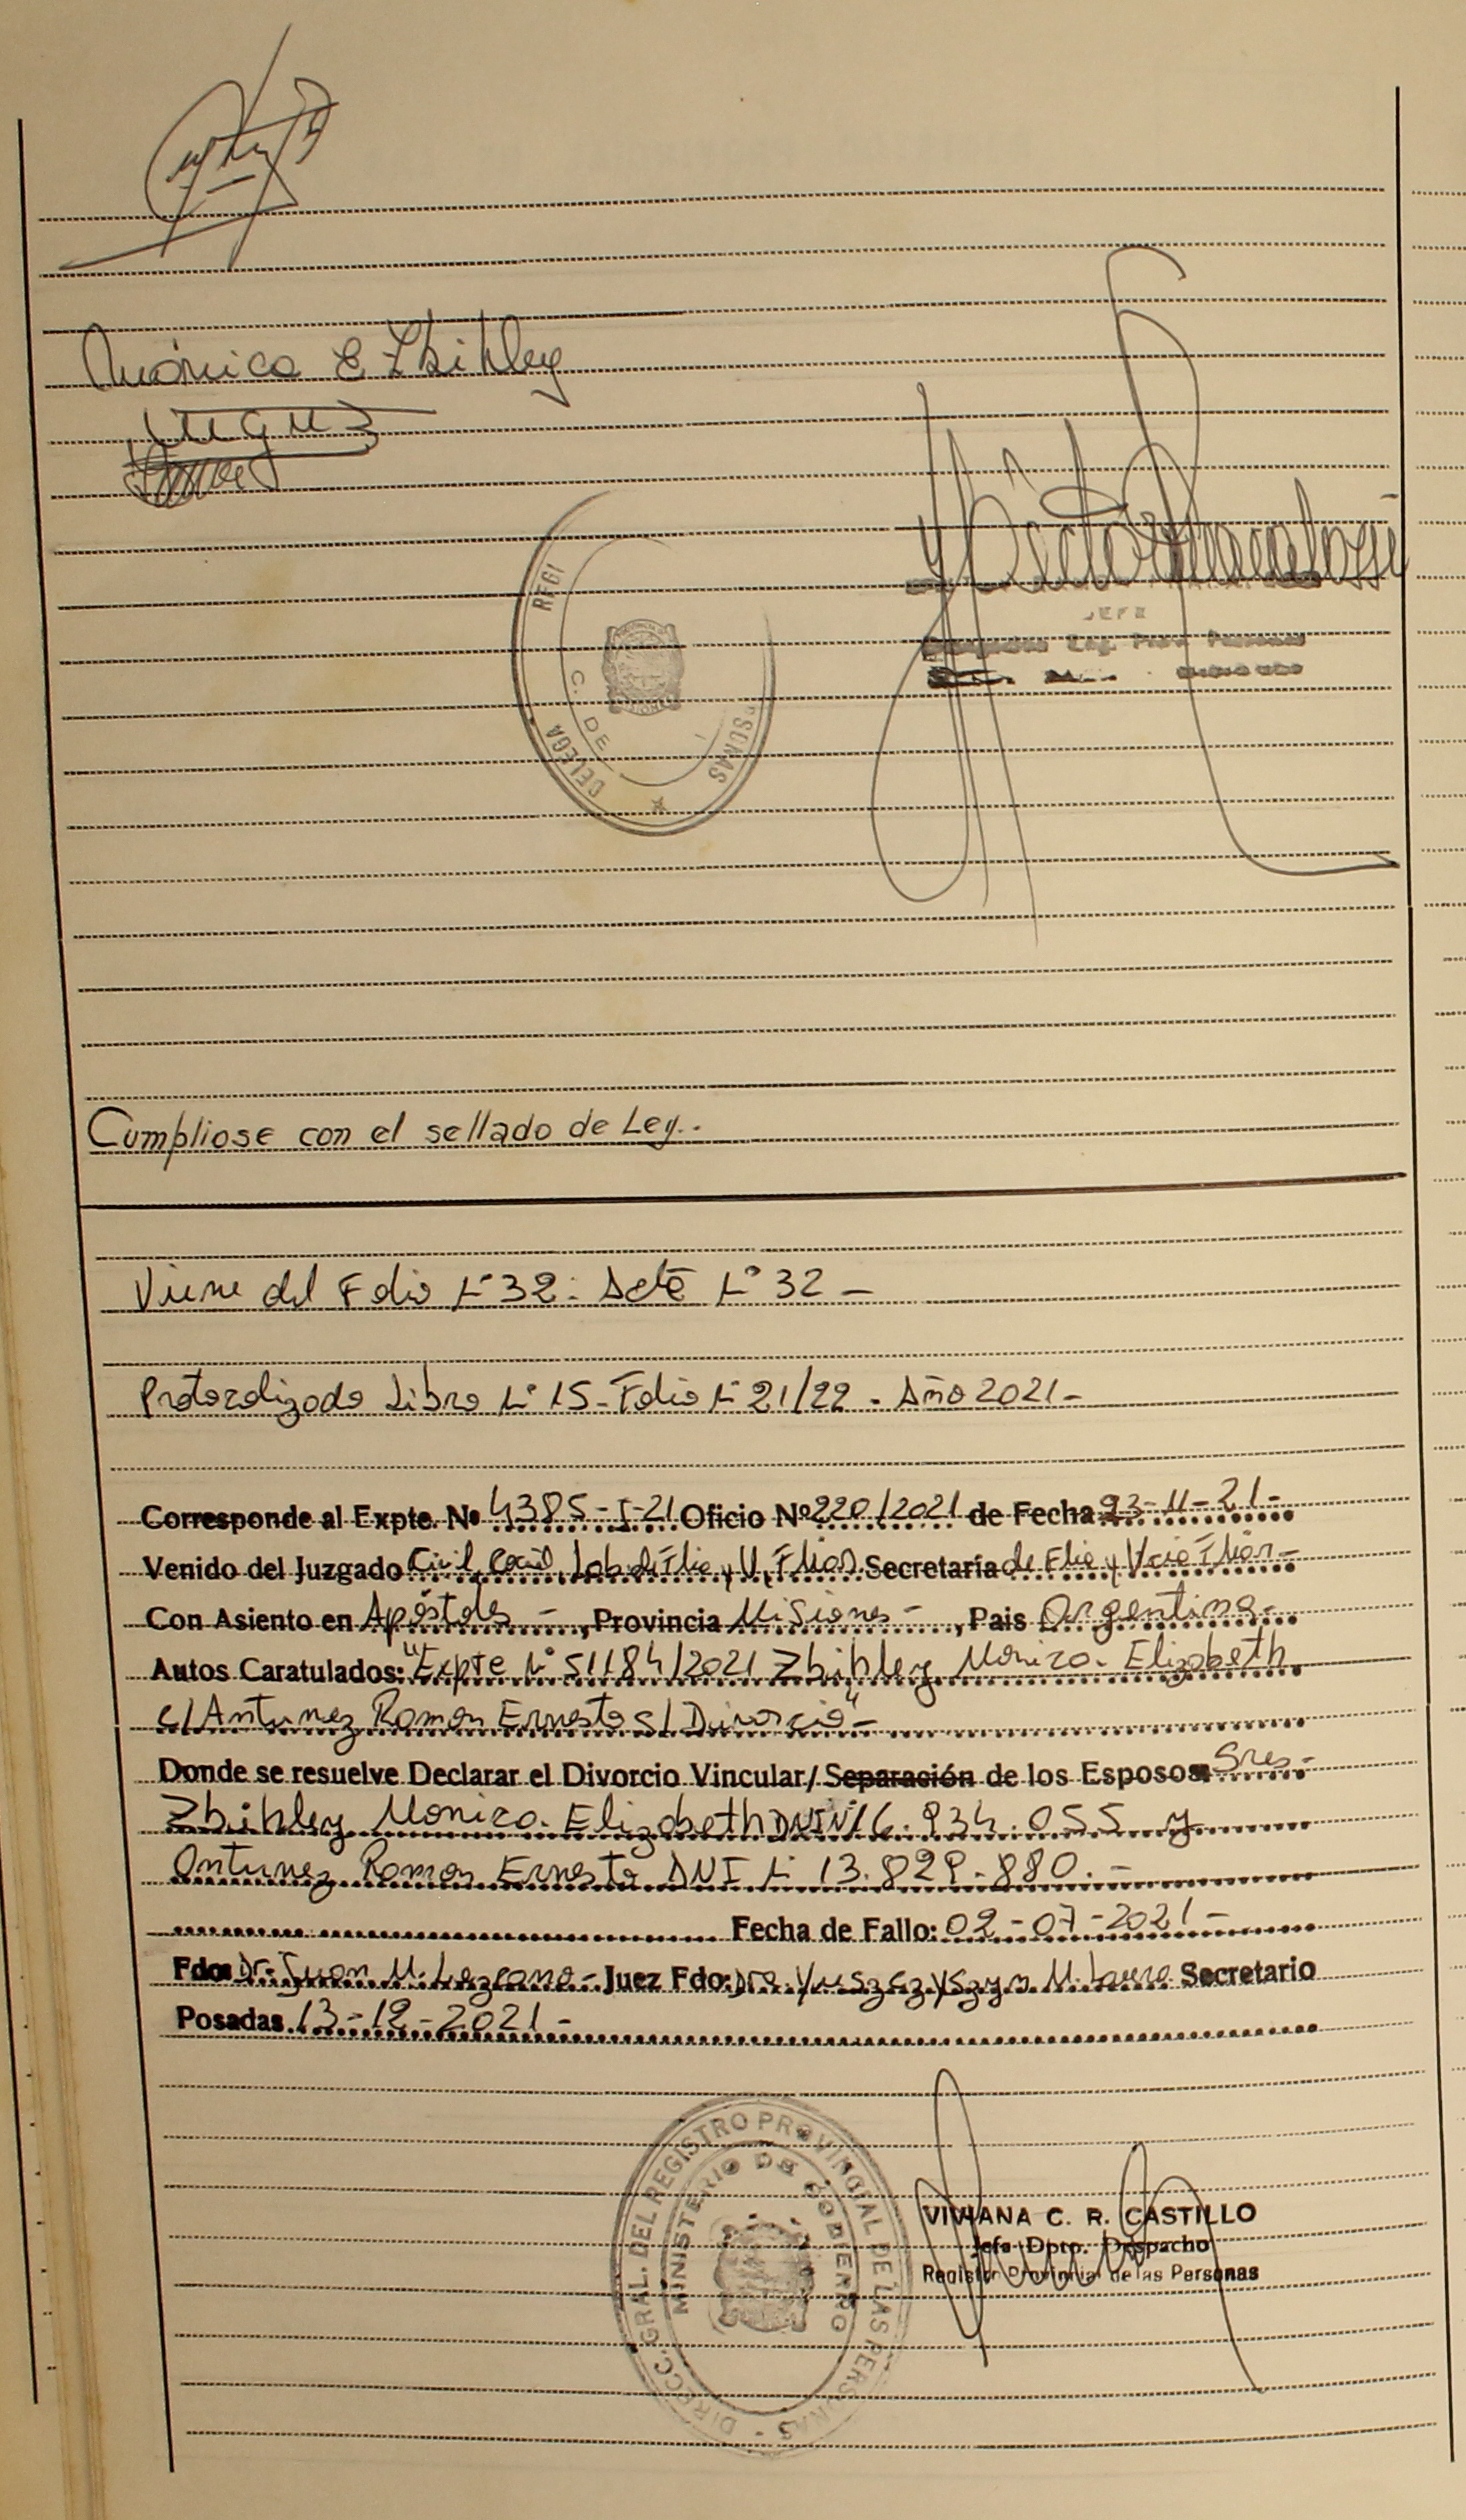 Mónica E Zbihley
REGI
DELEGA
C. DE
SONAS
JEFE
Cumpliose con el sellado de Ley..
Viene del Folio Nº 32: Acta Nº 32 -
Protocolizado Libro Nº 15 - Folio Nº 21/22 - Año 2021 -
Corresponde al Expte. Nº 4385-I-21 Oficio Nº 220/2021 de Fecha 23-11-21-
Venido del Juzgado Civil, Cocial, Lab de Flia y V, Fliar Secretaría de Flia y Vcia Fliar-
Con Asiento en Apóstoles -, Provincia Misiones -, Pais Argentina-
Autos Caratulados: "Expte Nº 51184/2021 Zbihley Monica Elizabeth
c/ Antunez Ramon Ernesto s/ Divorcio"-
Donde se resuelve Declarar el Divorcio Vincular/ Separación de los Esposos Sres-
Zbihley Monica Elizabeth DNI Nº 16.934.055 y
Antunez Ramon Ernesto DNI Nº 13.829.880.-
Fecha de Fallo: 02-07-2021-
Fdo: Dr. Juan M. Lezcano- Juez Fdo: Dra. Yuszczyszyn M. Laura Secretario
Posadas 13-12-2021-
DIRECC. GRAL. DEL REGISTRO PROVINCIAL DE LAS PERSONAS
MINISTERIO DE GOBIERNO
VIVIANA C. R. CASTILLO
Jefa Dpto. Despacho
Registro Provincial de las Personas